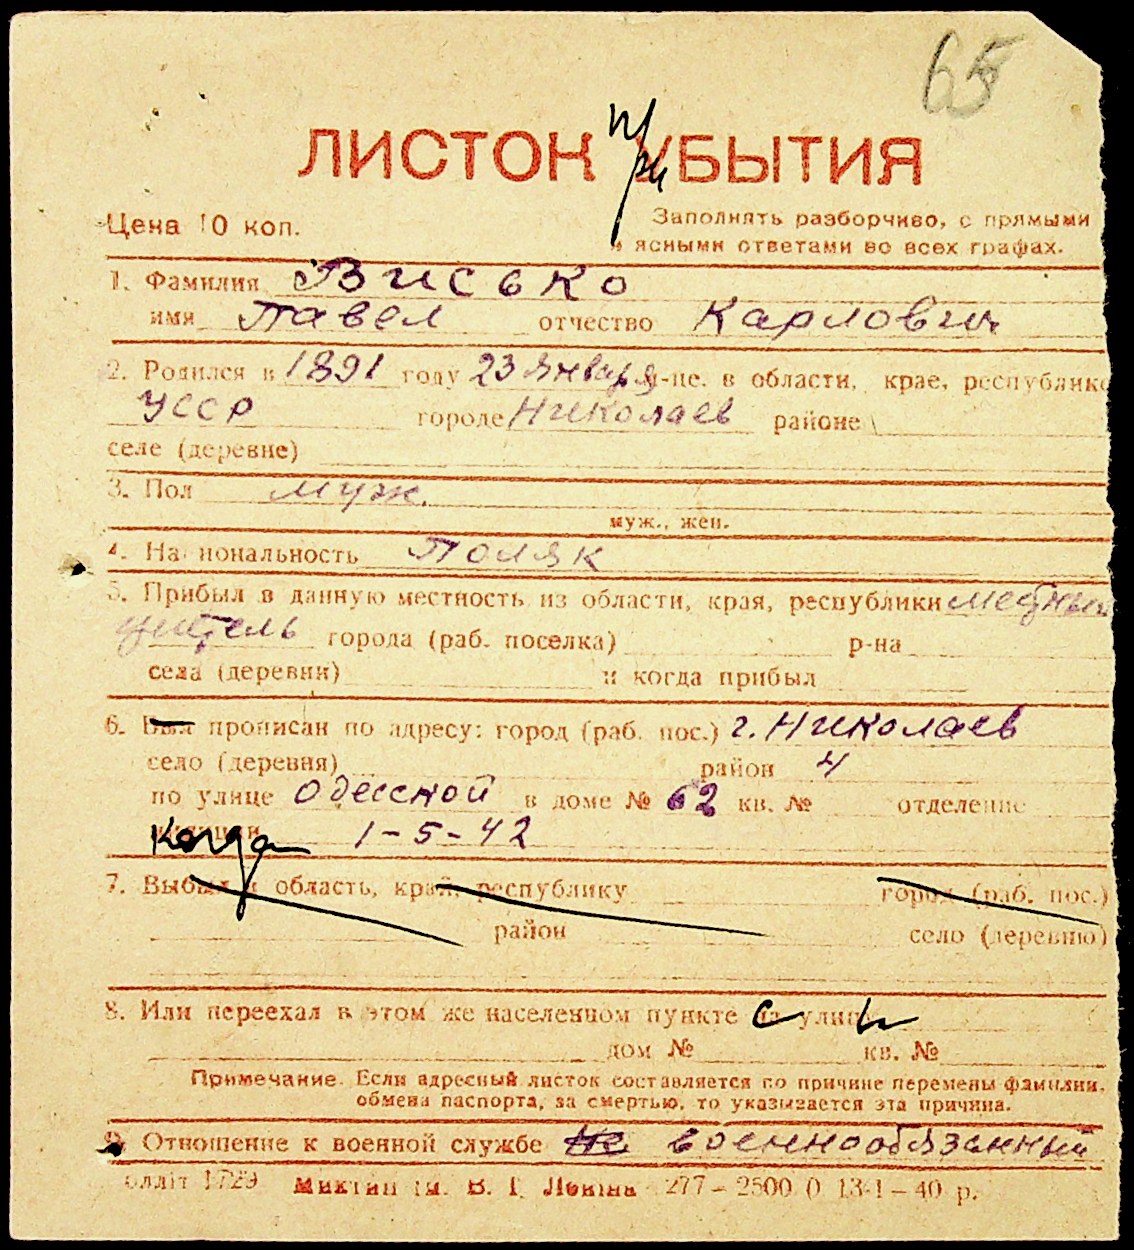 65
ЛИСТОК УБЫТИЯ
Цена 10 коп.
Заполнять разборчиво, с прямыми
и ясными ответами во всех графах.
1. Фамилия Висько
имя Павел отчество Карлович
2. Родился в 1891 году 23 января м-це. в области, крае, республике
УССР городе Николаев районе
селе (деревне)
3. Пол муж.
муж., жен.
4. Национальность Поляк
5. Прибыл в данную местность из области, края, республики местный
житель города (раб. поселка) р-на
села (деревни) и когда прибыл
6. Был прописан по адресу: город (раб. пос.) г. Николаев
село (деревня) район 4
по улице Одесской в доме № 62 кв. № отделение
милиции Когда 1-5-42
7. Выбыл в область, край, республику город (раб. пос.)
район село (деревню)
8. Или переехал в этом же населенном пункте на улицу
дом № кв. №
Примечание. Если адресный листок составляется по причине перемены фамилии,
обмена паспорта, за смертью, то указывается эта причина.
9. Отношение к военной службе Не военнообязанный
оллiт 1729 им. В. I. Ленiна 277–2500 0 13-1–40 р.